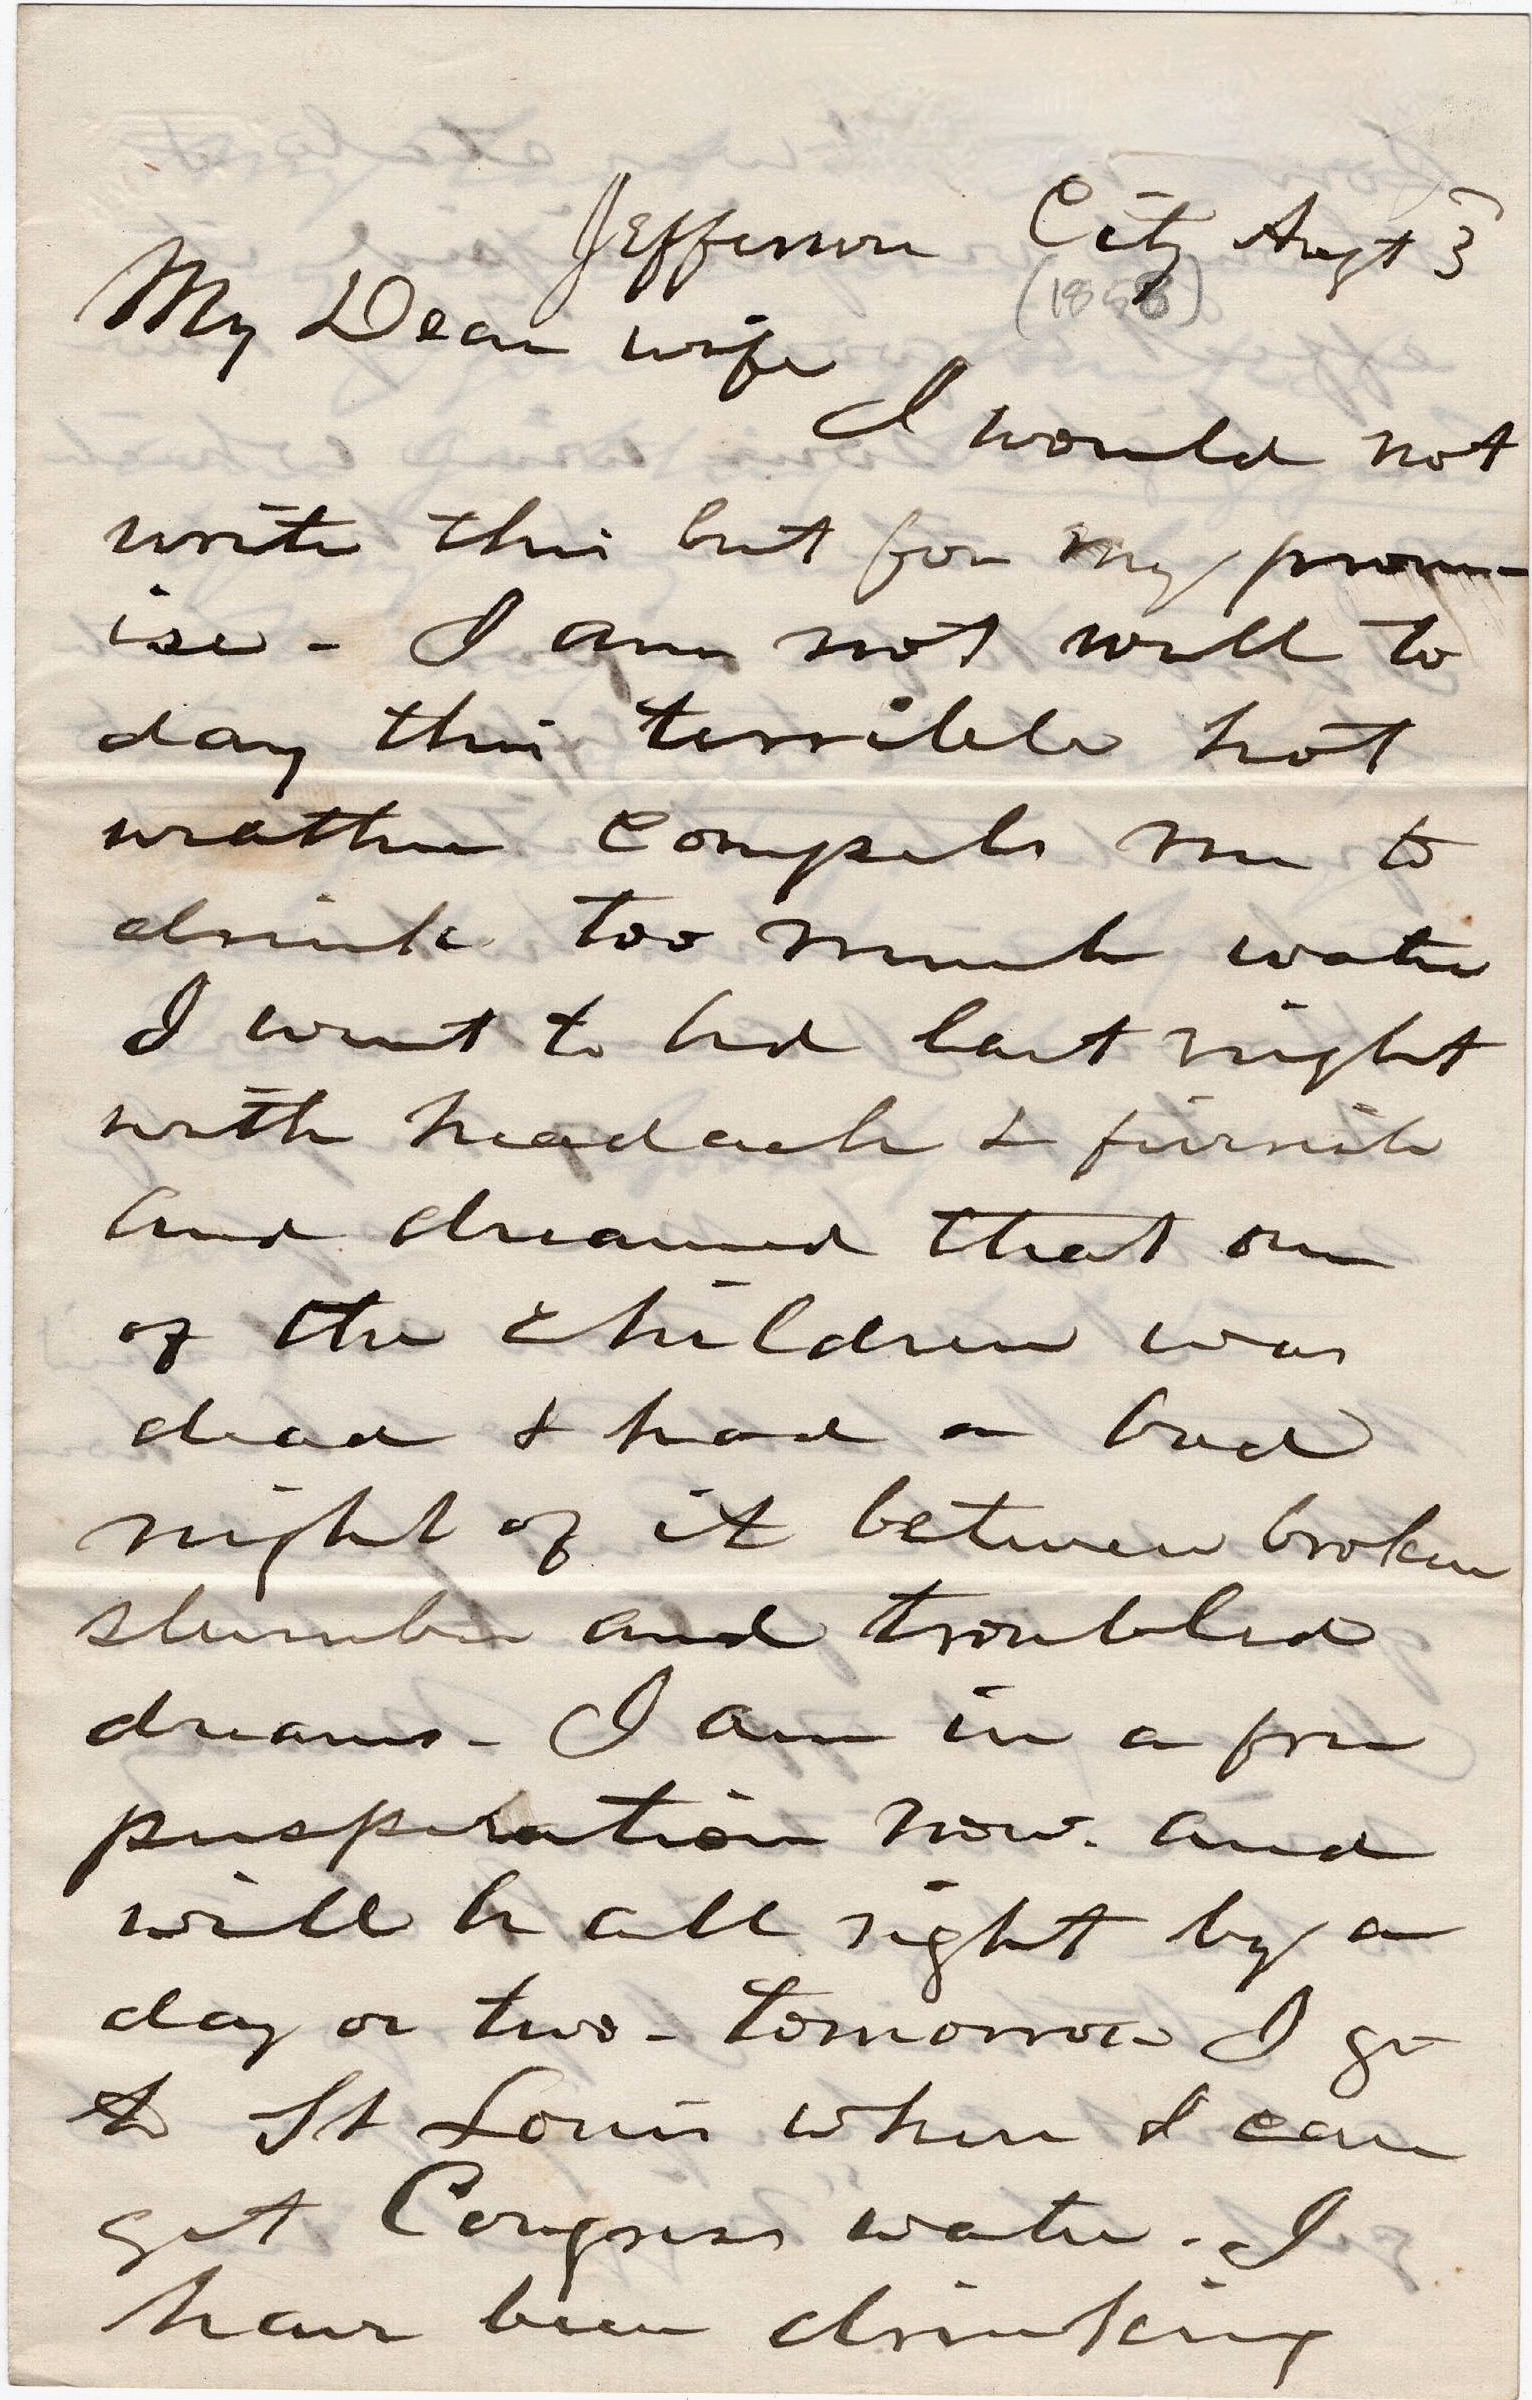 Jefferson City Augt 3
(1858)
My Dear wife
I would not
write this but for my prom-
ise - I am not well to
day this terrible hot
weather compels me to
drink too much water
I went to bed last night
with headach & feverish
and dreamed that one
of the children was
dead & had a bad
night of it between broken
slumber and troubled
dreams - I am in a free
perspiration now. and
will be all right by a
day or two - tomorrow I go
to St Louis where I can
get Congress water. I
have been drinking